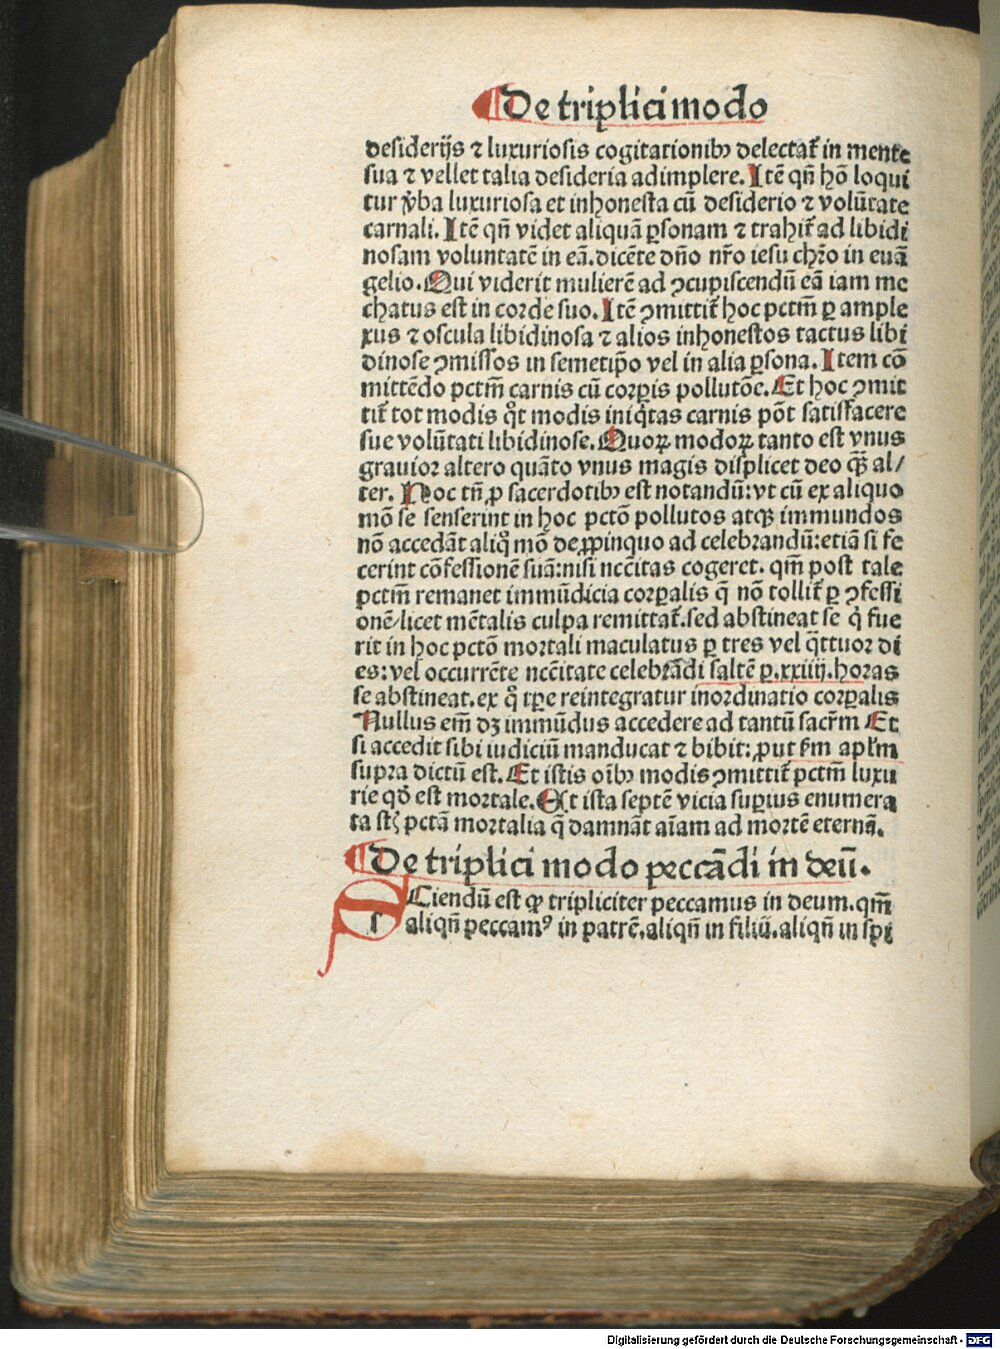 ¶ De triplici modo
desiderijs ⁊ luxuriosis cogitationibꝰ delectat᷑ in mente
sua ⁊ vellet talia desideria adimplere. Itē qn̄ hō loqui
tur v̓ba luxuriosa et inhonesta cū desiderio ⁊ volūtate
carnali. Itē qn̄ videt aliquā ꝑsonam ⁊ trahit᷑ ad libidi
nosam voluntatē in eā. dicēte dn̄o nr̄o iesu chr̄o in euā
gelio. Qui viderit mulierē ad ꝯcupiscendū eā iam me
chatus est in corde suo. Itē ꝯmittit᷑ hoc pctm̄ ꝑ ample
xus ⁊ oscula libidinosa ⁊ alios inhonestos tactus libi
dinose ꝯmissos in semetip̄o vel in alia ꝑsona. Item cō
mittēdo pctm̄ carnis cū corꝑis pollutōe. Et hoc ꝯmit
tit᷑ tot modis qͦt modis iniqͥtas carnis pōt satisfacere
sue volūtati libidinose. Quoꝝ modoꝝ tanto est vnus
grauior altero quāto vnus magis displicet deo qꝫ̄ al/
ter. Hoc tn̄ ꝓ sacerdotibꝰ est notandū: vt cū ex aliquo
mō se senserint in hoc pctō pollutos atqꝫ immundos
nō accedāt aliqͦ mō de ꝓpinquo ad celebrandū: etiā si fe
cerint cōfessionē suā: nisi nccītas cogeret. qm̄ post tale
pctm̄ remanet immūdicia corꝑalis q̄ nō tollit᷑ ꝑ ꝯfessi
onē/ licet mētalis culpa remittat᷑. sed abstineat se qͥ fue
rit in hoc pctō mortali maculatus ꝑ tres vel qͣttuor di
es: vel occurrēte nccītate celebrādi saltē ꝑ. xxiiij. horas
se abstineat. ex qͦ tꝑe reintegratur inordinatio corꝑalis
Nullus em̄ dꝫ immūdus accedere ad tantū sacr̄m Et
si accedit sibi iudiciū manducat ⁊ bibit: ꝓut s̄m apl̄m
supra dictū est. Et istis oībꝰ modis ꝯmittit᷑ pctm̄ luxu
rie qd̓ est mortale. Et ista septē vicia superius enumera
ta st̄ pctā mortalia q̄ damnāt aīam ad mortē eternā.
¶ De triplici modo peccādi in deū.
SCiendū est qꝫ tripliciter peccamus in deum. qm̄
aliqn̄ peccamꝰ in patrē. aliqn̄ in filiū. aliqn̄ in spi
Digitalisierung gefördert durch die Deutsche Forschungsgemeinschaft - DFG